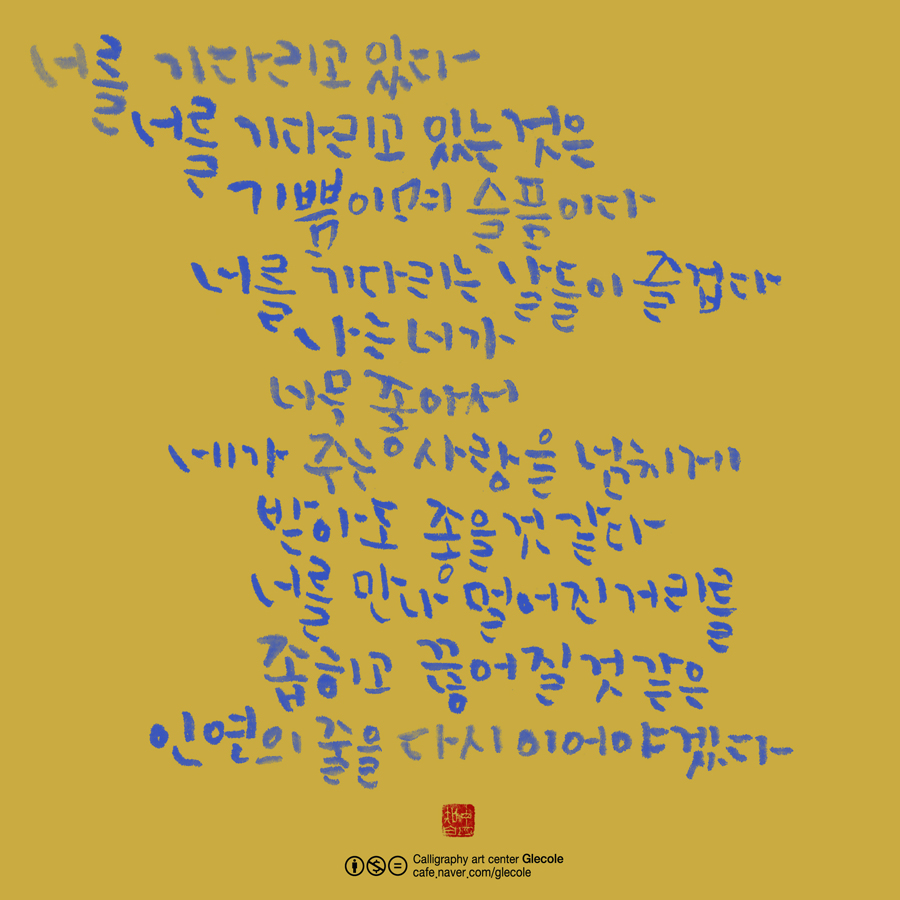 너를 기다리고 있다
너를 기다리고 있는 것은
기쁨이며 슬픔이다
너를 기다리는 날들이 즐겁다
나는 네가
너무 좋아서
네가 주는 사랑을 넘치게
받아도 좋을 것 같다
너를 만나 멀어진 거리를
좁히고 끊어질 것 같은
인연의 줄을 다시 이어야겠다
Calligraphy art center Glecole
cafe.naver.com/glecole